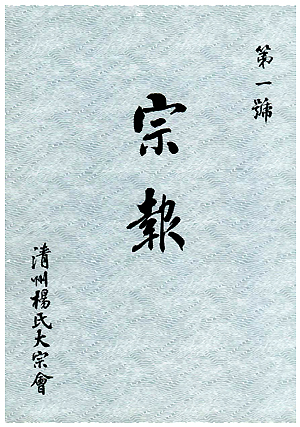 第一號
宗報
清州楊氏大宗會